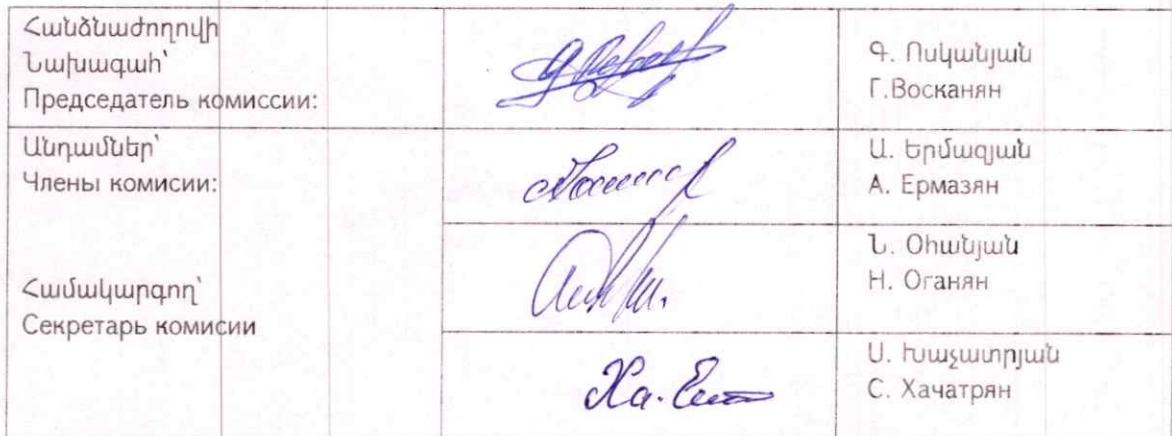 Հանձնաժողովի
Նախագահ՝
Председатель комиссии:
Գ. Ոսկանյան
Г.Восканян
Անդամներ՝
Члены комисии:
Ա. Երմազյան
А. Ермазян
Ն. Օհանյան
Н. Оганян
Համակարգող՝
Секретарь комисии
Ս. Խաչատրյան
С. Хачатрян